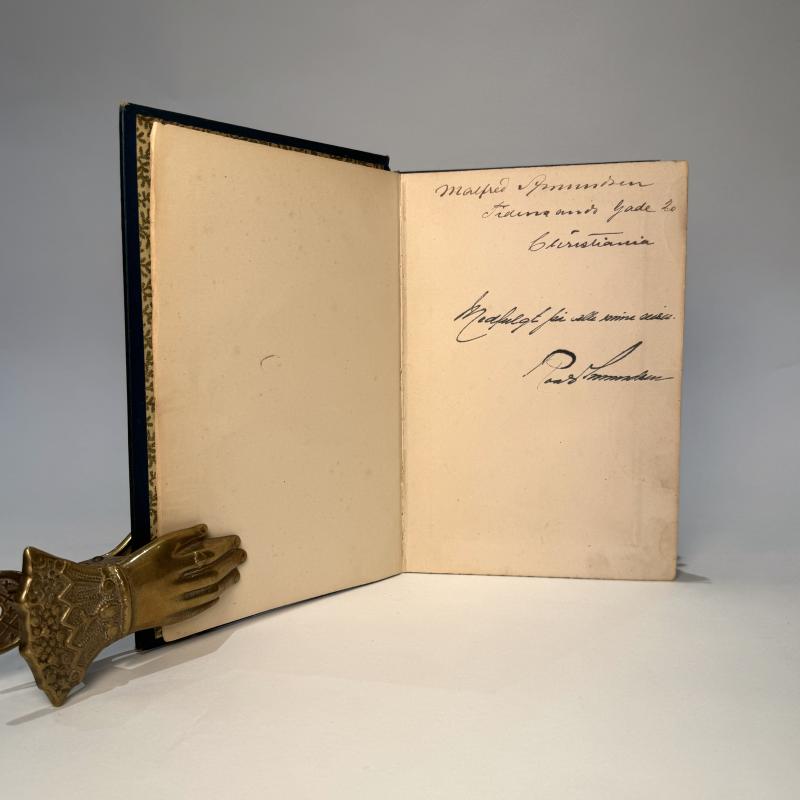 Malfred Amundsen
gade 20
Christiania
Medfulgt på alle mine reiser.
Roald Amundsen